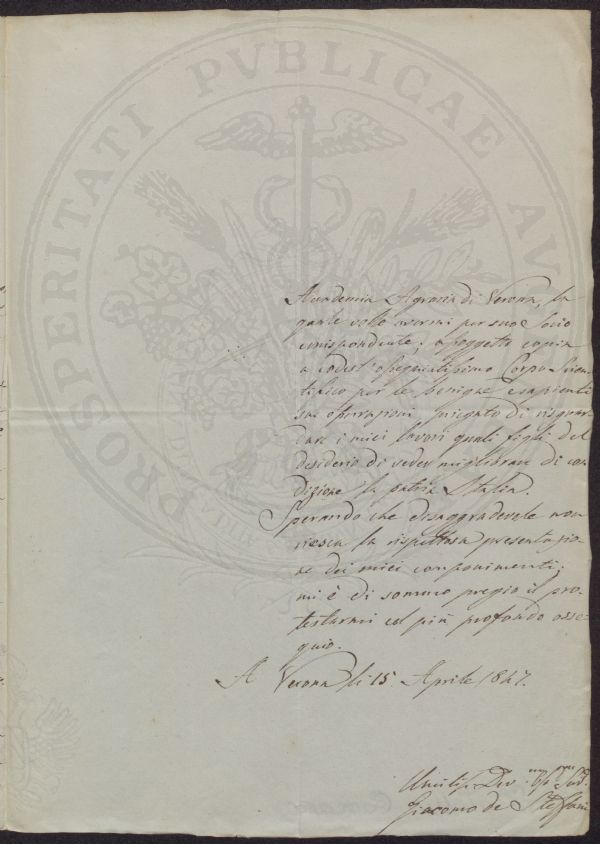 PROSPERITATI PVBLICAE AV
Accademia Agraria di Verona, la
quale volle avermi per suo Socio
corrispondente; e soggetto copia
a codest'ossequiatissimo Corpo Scien-
tifico per le benigne e sapienti
sue operazioni pregato di risguar-
dare i miei lavori quali figli del
desiderio di veder migliorare di con-
dizione la patria Italia.
Sperando che disaggradevole non
riesca la rispettosa presentazio-
ne dei miei componimenti;
mi è di sommo pregio il pro-
testarmi col più profondo osse-
quio.
A Verona li 15 Aprile 1847.
Umilis. Dev.
Giacomo de Stefani